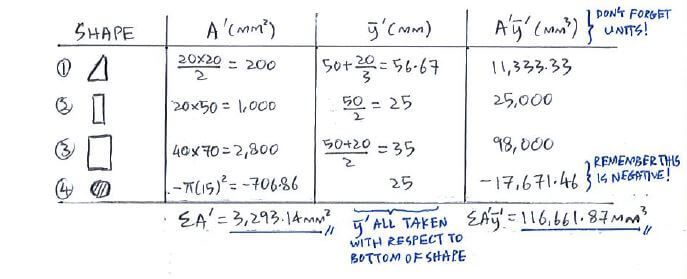 SHAPE A'(MM²) ȳ'(MM) A'ȳ'(MM³) } DON'T FORGET
UNITS!
① 20×20/2 = 200 50+20/3 = 56.67 11,333.33
② 20×50 = 1,000 50/2 = 25 25,000
③ 40×70 = 2,800 50+20/2 = 35 98,000
④ -π(15)² = -706.86 25 -17,671.46 } REMEMBER THIS
IS NEGATIVE!
ΣA' = 3,293.14MM² ΣA'ȳ' = 116,661.87MM³
ȳ' ALL TAKEN
WITH RESPECT TO
BOTTOM OF SHAPE